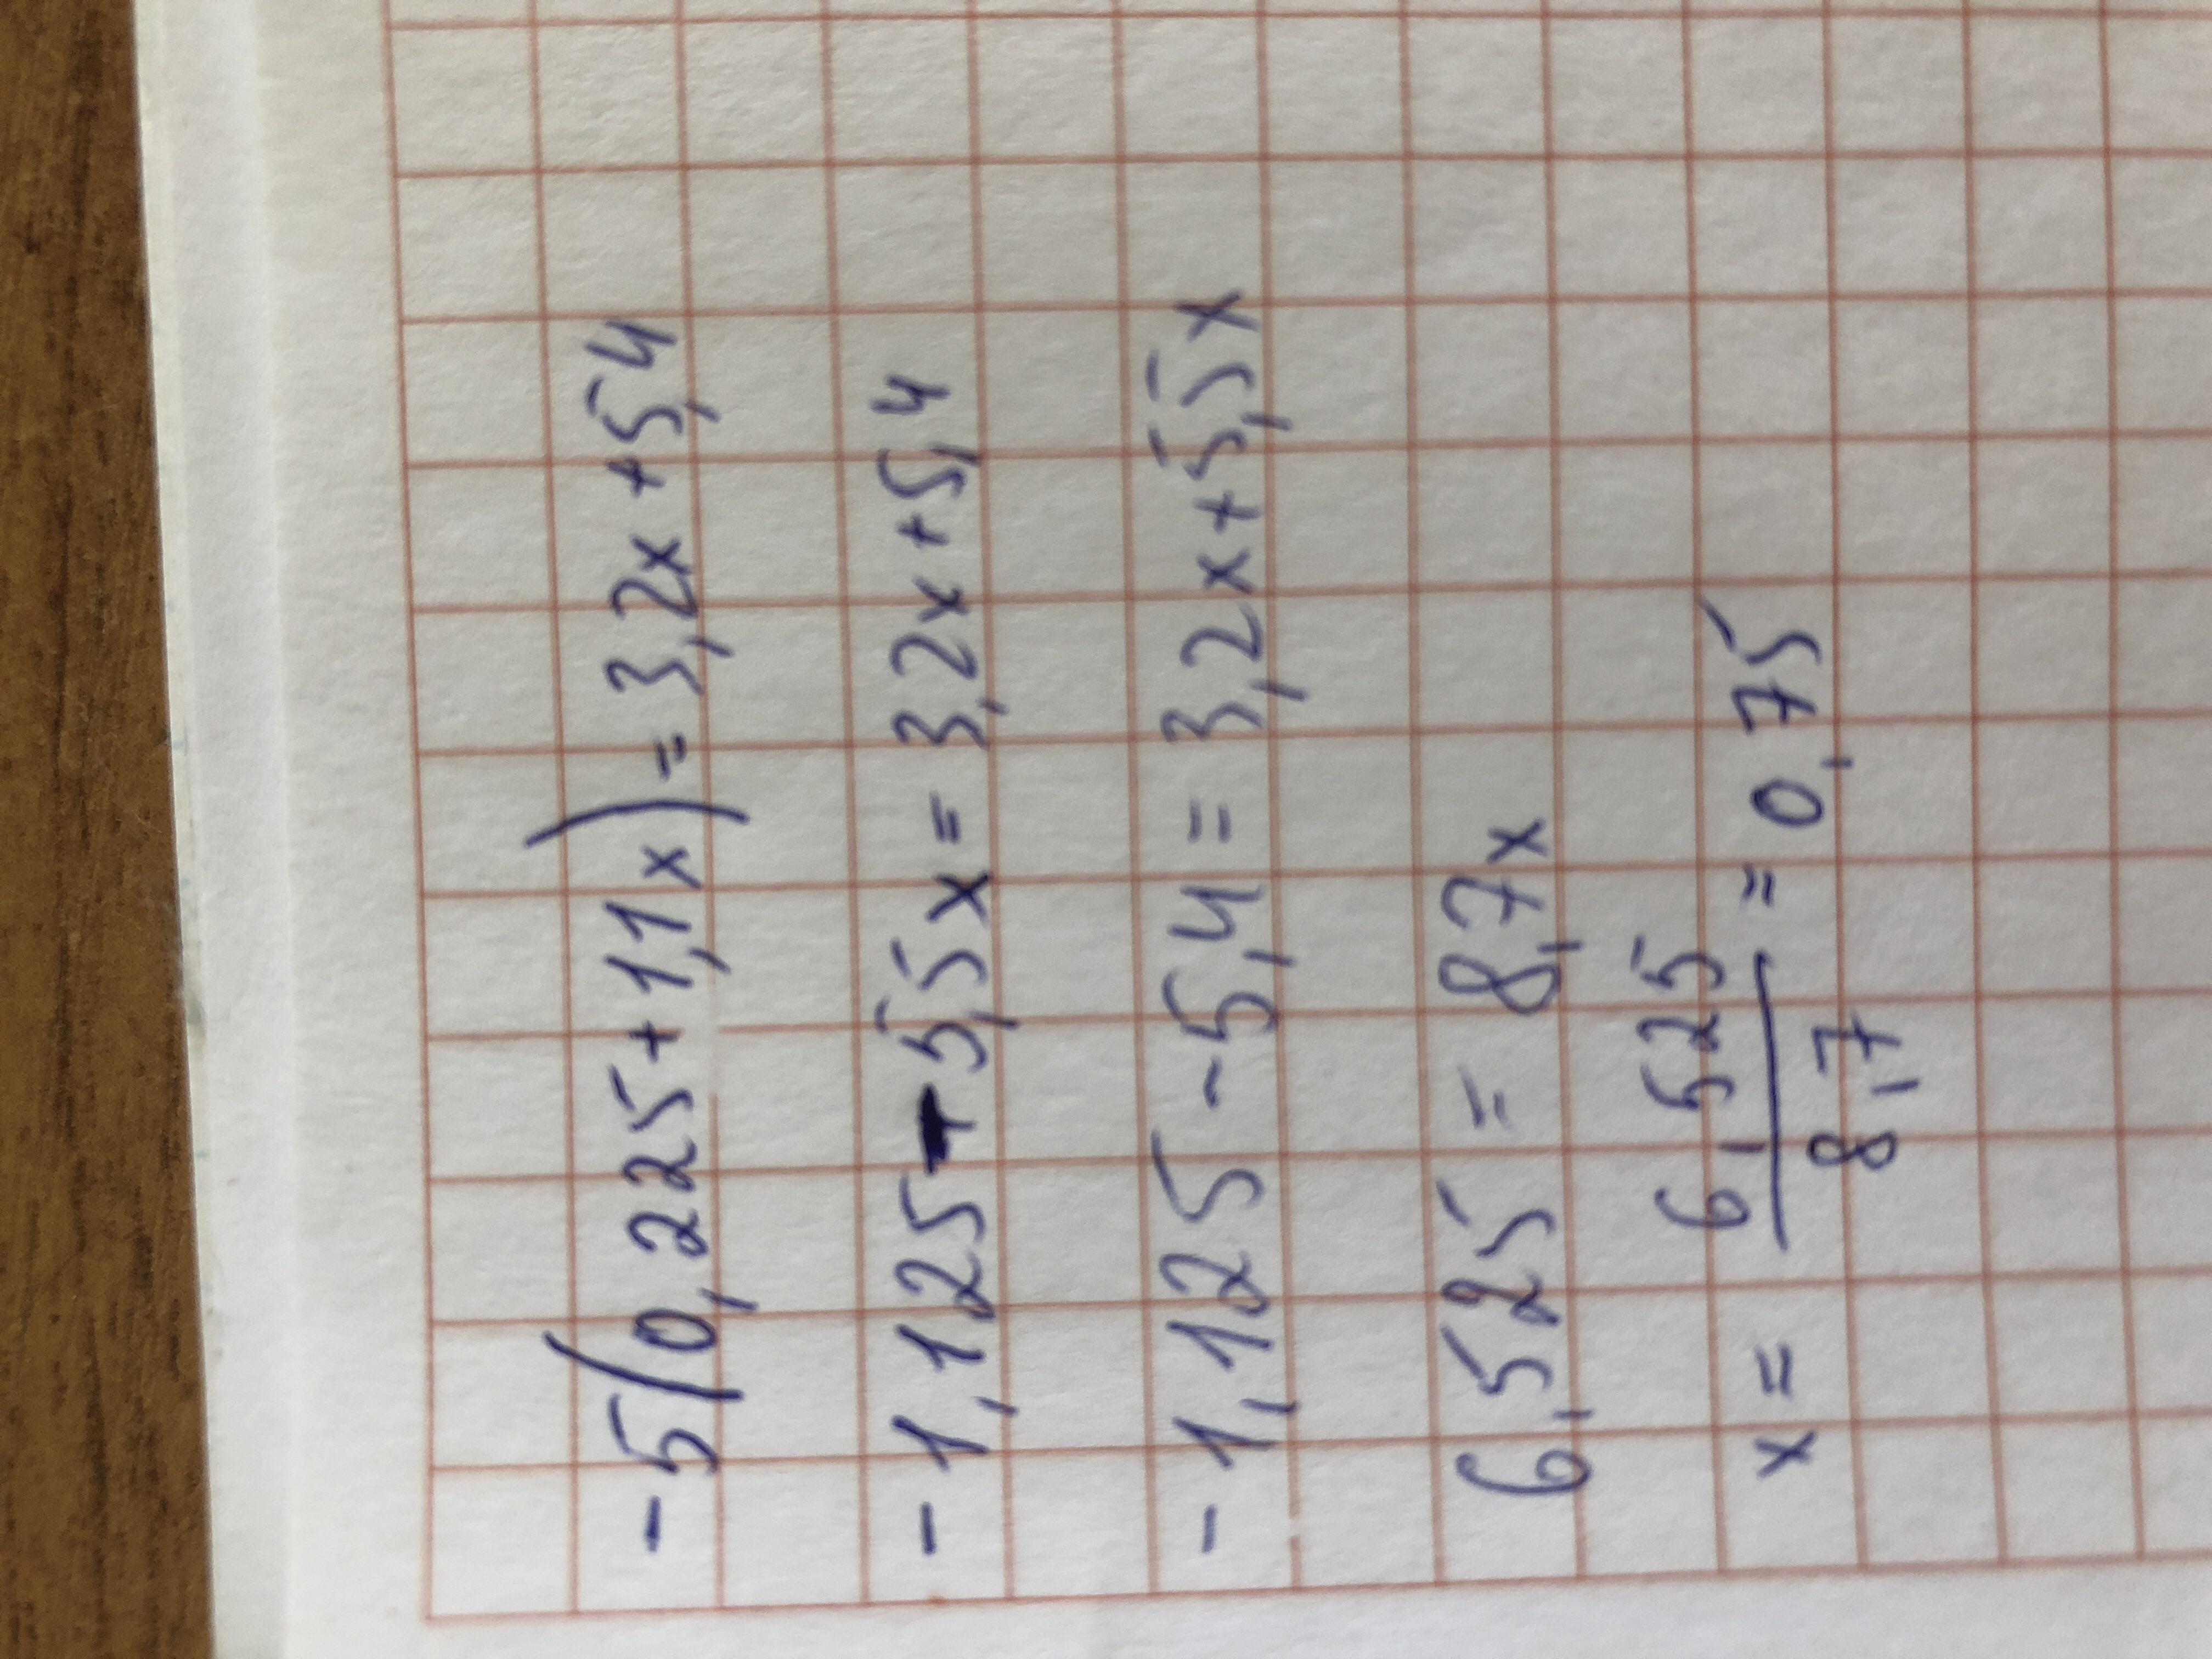 -5(0,225+1,1x)=3,2x+5,4
-1,125-5,5x=3,2x+5,4
-1,125-5,4=3,2x+5,5x
6,525=8,7x
x=6,525/8,7=0,75